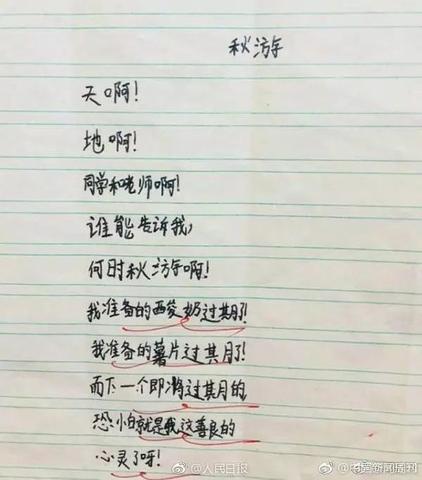 秋游
天啊！
地啊！
同学和老师啊！
谁能告诉我，
何时秋游啊！
我准备的西瓷奶过期了！
我准备的薯片过期了！
而下一个即将过期的，
恐怕就是我这善良的
心灵了呀！
@人民日报
@中国新闻周刊